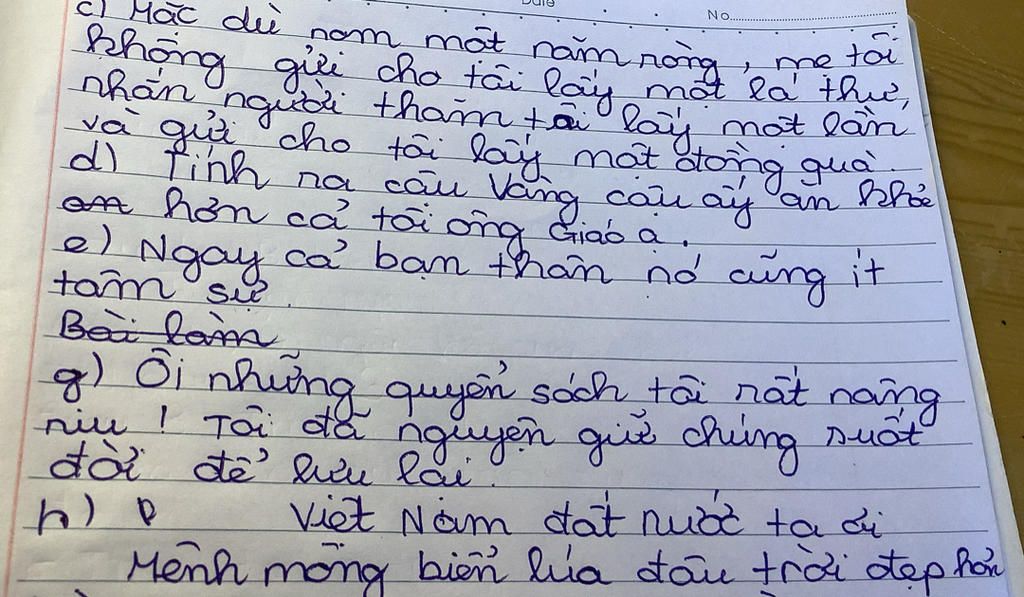 Date
No.
c) Mặc dù non một năm ròng, mẹ tôi
không gửi cho tôi lấy một lá thư,
nhắn người thăm tôi lấy một lần
và gửi cho tôi lấy một đồng quà.
d) Tính ra cậu Vàng cậu ấy ăn khỏe
hơn cả tôi ông Giáo ạ.
e) Ngay cả bạn thân nó cũng ít
tâm sự.
Bài làm
g) Ôi những quyển sách tôi rất nâng
niu! Tôi đã nguyện giữ chúng suốt
đời để lưu lại.
h) Việt Nam đất nước ta ơi
Mênh mông biển lúa đâu trời đẹp hơn